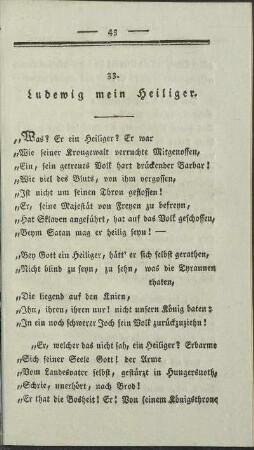 — — 45 — —
33.
Ludewig mein Heiliger.
„Was? Er ein Heiliger? Er war
„Wie seiner Krongewalt verruchte Mitgenossen,
„Ein, sein getreues Volk hart drückender Barbar!
„Wie viel des Bluts, von ihm vergossen,
„Ist nicht um seinen Thron geflossen!
„Er, seine Majestät von Freyen zu befreyn,
„Hat Sklaven angeführt, hat auf das Volk geschossen,
„Beym Satan mag er heilig seyn! —
„Bey Gott ein Heiliger, hätt' er sich selbst gerathen,
„Nicht blind zu seyn, zu sehn, was die Tyrannen
thaten,
„Die liegend auf den Knien,
„Ihn, ihren, ihren nur! nicht unsern König baten:
„In ein noch schwerer Joch sein Volk zurückzuziehn!
„Er, welcher das nicht sah, ein Heiliger? Erbarme
„Sich seiner Seele Gott! der Arme
„Vom Landesvater selbst, gestürzt in Hungersnoth,
„Schrie, unerhört, nach Brod!
„Er that die Bosheit! Er! Von seinem Königsthrone